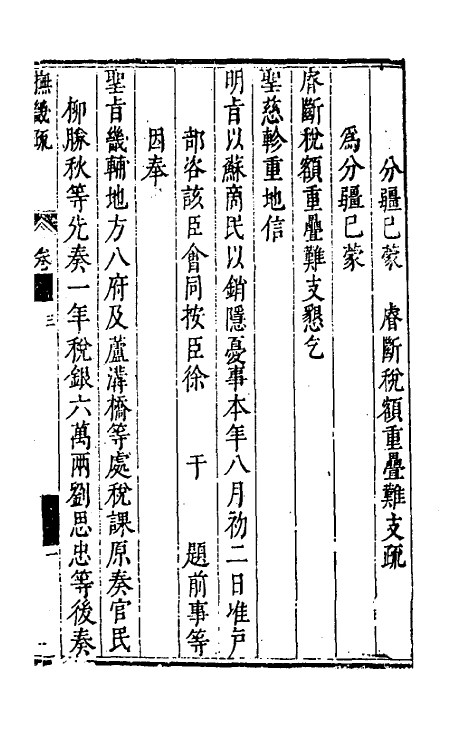 分疆已蒙　睿斷稅額重疊難支疏
為分疆已蒙
睿斷稅額重疊難支懇乞
聖慈軫重地信
明旨以蘇商民以銷隱憂事本年八月初二日准戶
部咨該臣會同按臣徐　于　題前事等
因奉
聖旨畿輔地方八府及蘆溝橋等處稅課原奏官民
柳勝秋等先奏一年稅銀六萬兩劉思忠等後奏
撫畿疏　卷　三　一